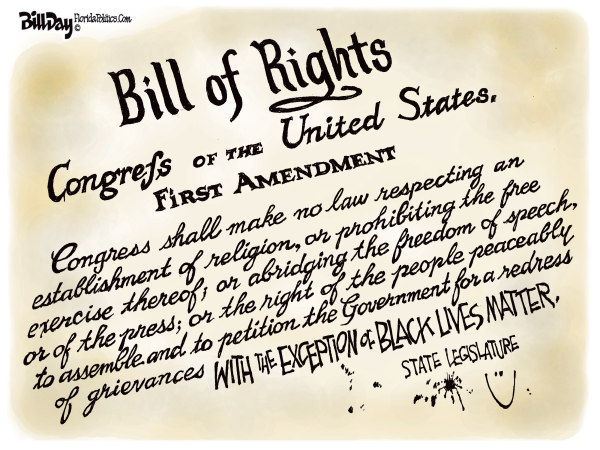 BillDay FloridaPolitics.Com
©
Bill of Rights
Congreſs OF THE United States.
FIRST AMENDMENT
Congress shall make no law respecting an
establishment of religion, or prohibiting the free
exercise thereof; or abridging the freedom of speech,
or of the press; or the right of the people peaceably
to assemble and to petition the Government for a redress
of grievances WITH THE EXCEPTION OF BLACK LIVES MATTER.
STATE LEGISLATURE